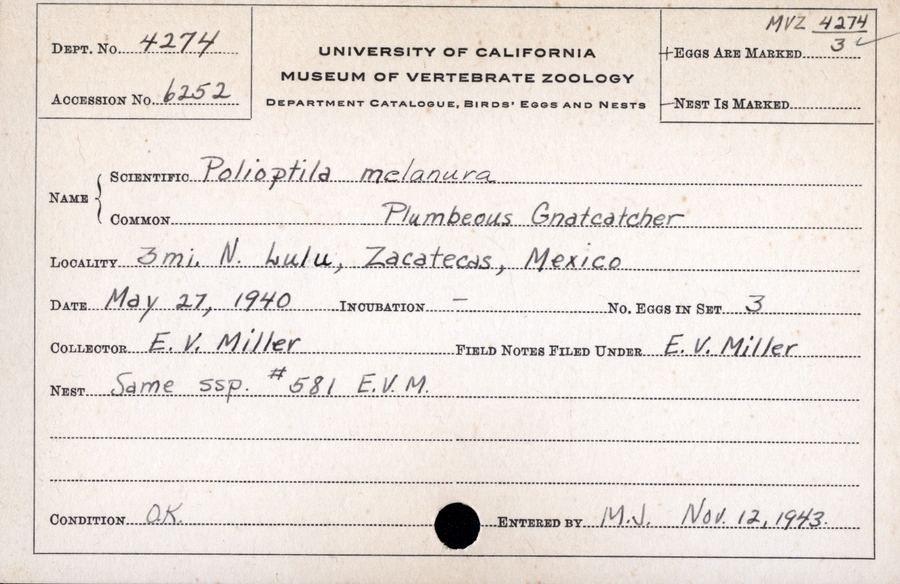 DEPT. NO. 4274
ACCESSION NO. 6252
UNIVERSITY OF CALIFORNIA
MUSEUM OF VERTEBRATE ZOOLOGY
DEPARTMENT CATALOGUE, BIRDS' EGGS AND NESTS
MVZ 4274
3 ✓
EGGS ARE MARKED
NEST IS MARKED
NAME
SCIENTIFIC Polioptila melanura
COMMON Plumbeous Gnatcatcher
LOCALITY 3mi. N. Lulu, Zacatecas, Mexico
DATE May 27, 1940 INCUBATION – NO. EGGS IN SET 3
COLLECTOR E. V. Miller FIELD NOTES FILED UNDER E. V. Miller
NEST Same ssp. #581 E.V.M.
CONDITION O.K. ENTERED BY M.J. Nov. 12, 1943.